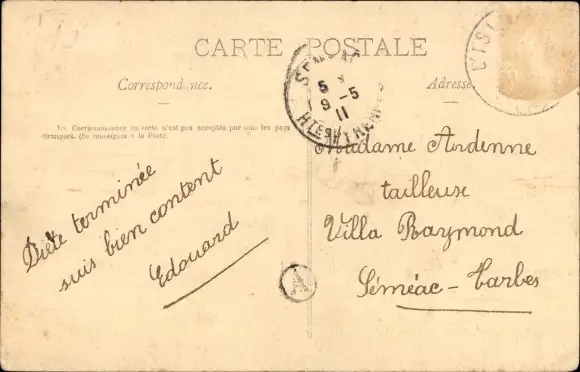 CARTE POSTALE
Correspondance.
Adresse
La Correspondance au recto n'est pas acceptée par tous les pays
étrangers. (Se renseigner à la Poste.
SÉMÉAC
5
9 - 5
11
HTES PYRÉNÉES
L'ISL
Diète terminée
suis bien content
Edouard
A
Madame Ardenne
tailleuse
Villa Raymond
Séméac - Tarbes